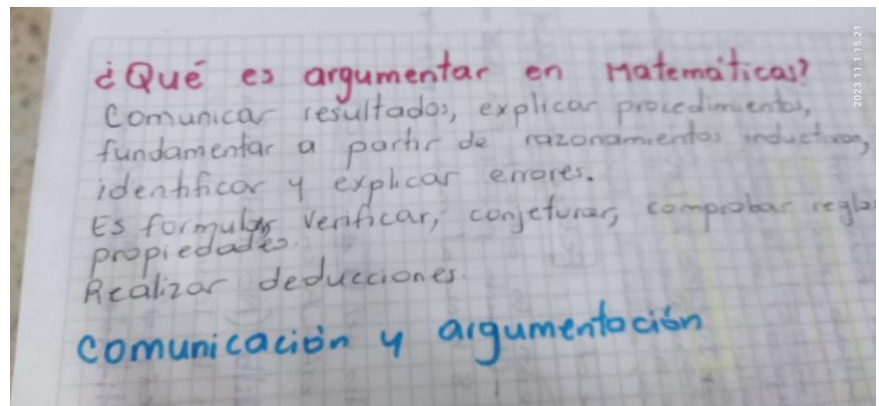 ¿Qué es argumentar en Matemáticas?
Comunicar resultados, explicar procedimientos,
fundamentar a partir de razonamientos inductivos,
identificar y explicar errores.
Es formular, verificar, conjeturar, comprobar reglas
propiedades.
Realizar deducciones.
Comunicación y argumentación
2023.11.1 15:21